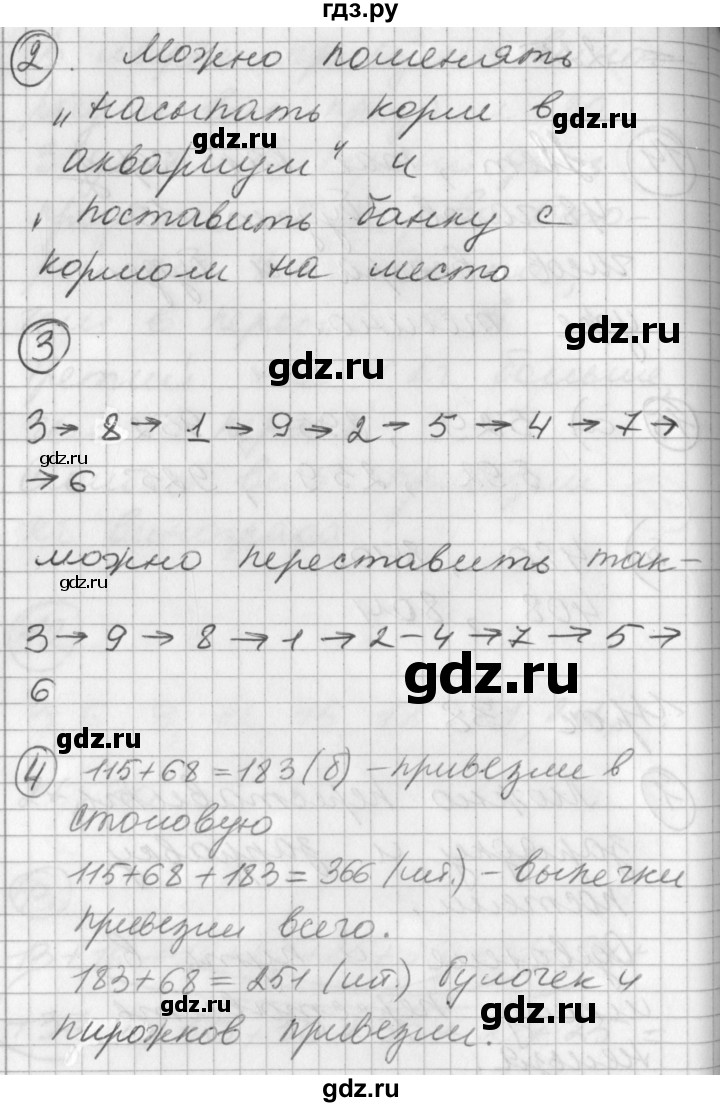 гдз.ру
2. Можно поменять
„насыпать корм в
gdz.ru
gdz.ru
аквариум" и
„поставить банку с
кормом на место
gdz.ru
3
gdz.ru
3→8→1→9→2→5→4→7→
gdz.ru
→6
можно переставить так-
gdz.ru
3→9→8→1→2-4→7→5→
gdz.ru
6
gdz.ru
4 115+68=183(б) - привезли в
столовую
115+68+183=366 (шт.) - выпечки
привезли всего.
183+68=251 (шт.) булочек и
gdz.ru
gdz.ru
пирожков привезли.
gdz.ru